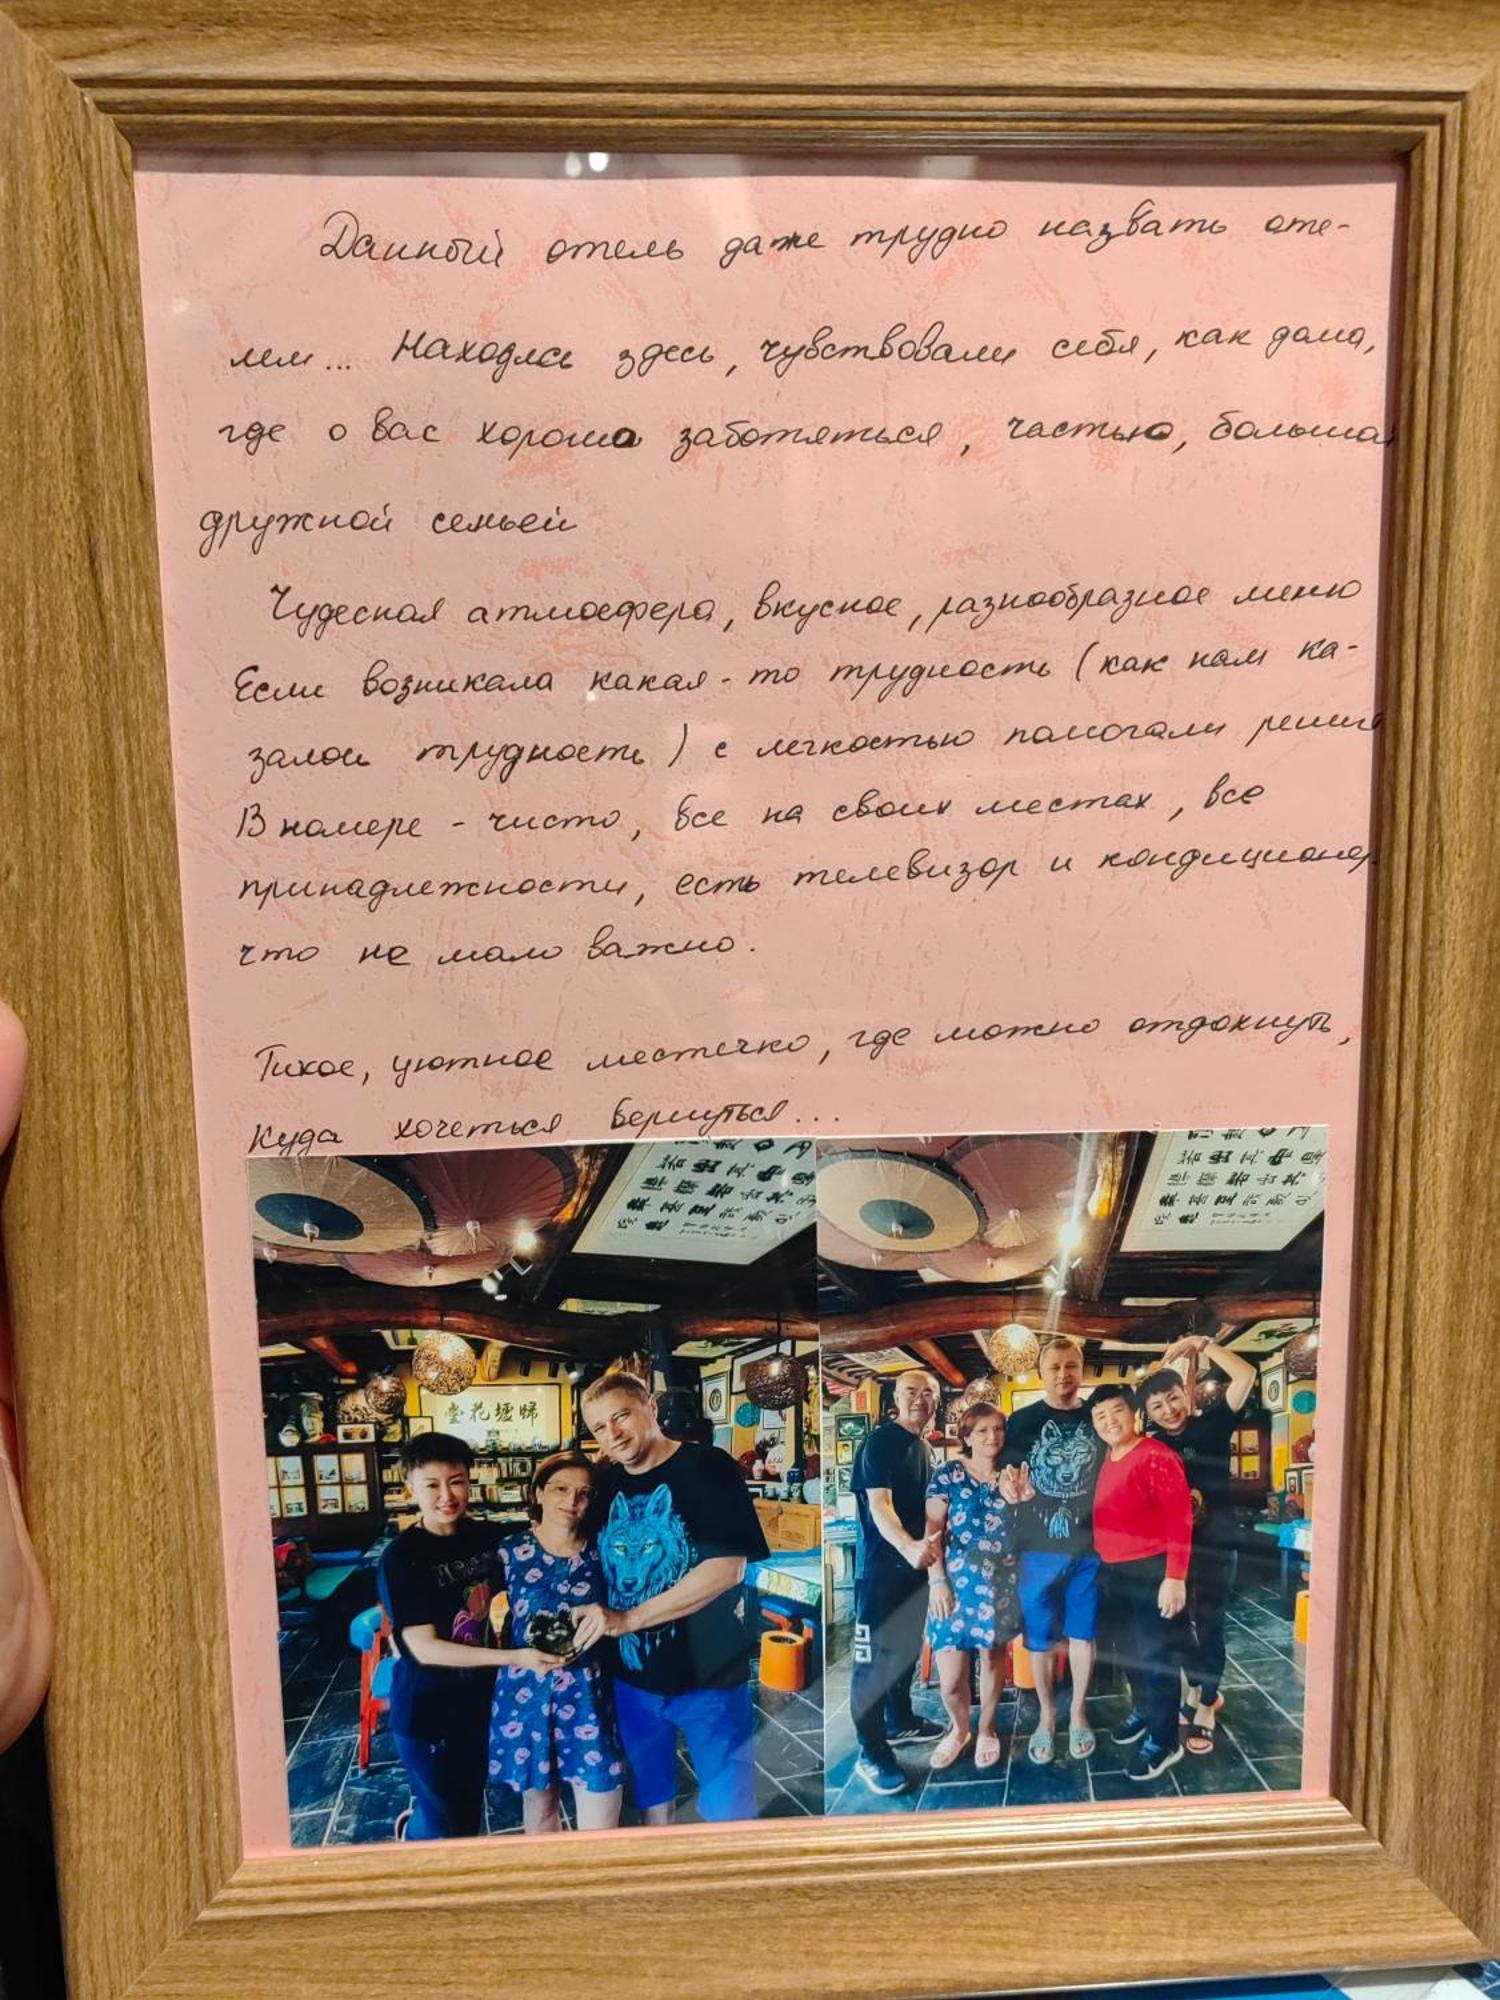 Данный отель даже трудно назвать оте-
лем... Находясь здесь, чувствовали себя, как дома,
где о вас хорошо заботяться, частью, большой
дружной семьей
Чудесная атмосфера, вкусное, разнообразное меню
Если возникала какая-то трудность (как нам ка-
залось трудность) с легкостью помогали решить
В номере - чисто, все на своих местах, все
принадлежности, есть телевизор и кондиционер
что не мало важно.
Тихое, уютное местечко, где можно отдохнуть,
куда хочеться вернуться...
堂花墟歸